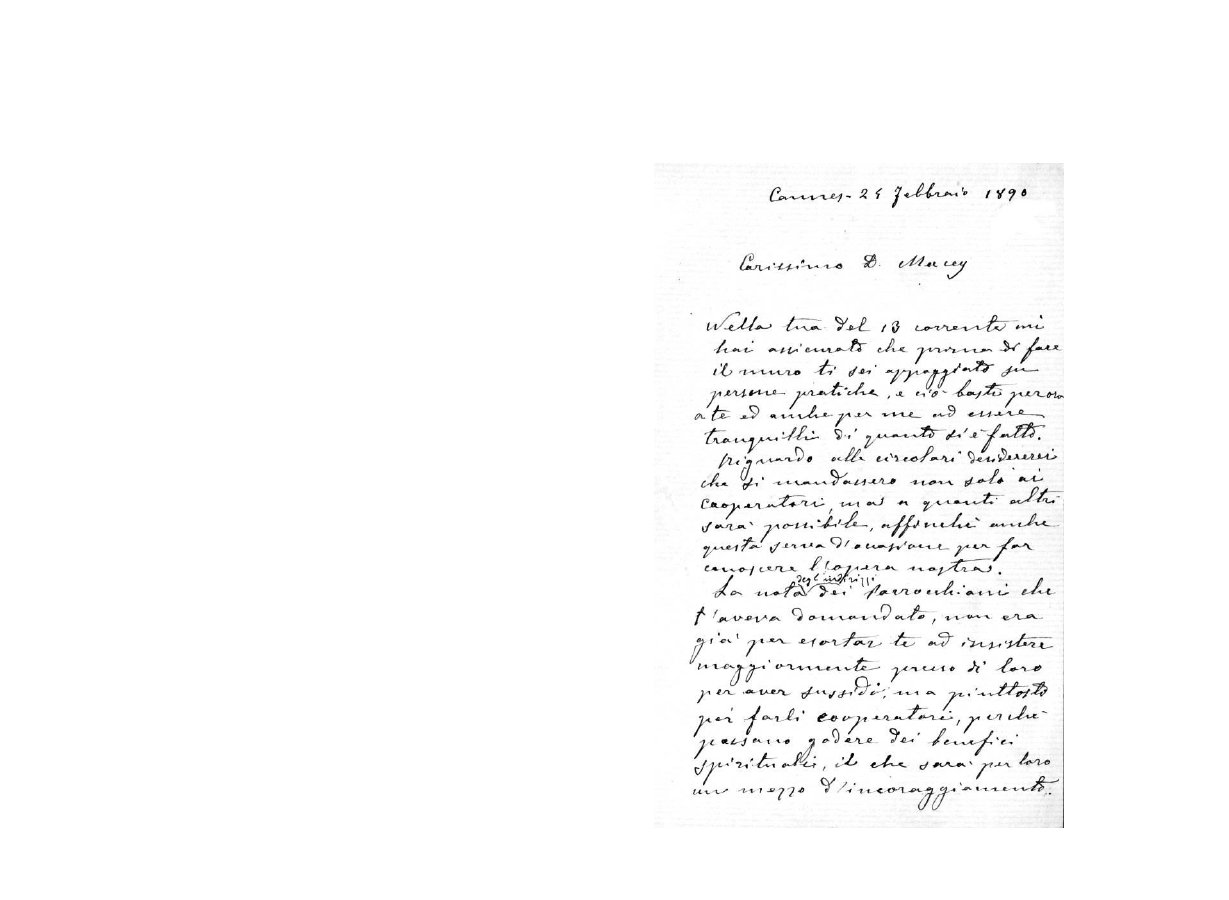 Cannes - 25 Febbraio 1890
Carissimo D. Macey
Nella tua del 13 corrente mi
hai assicurato che prima di fare
il muro ti sei appoggiato su
persone pratiche, e ciò basti
a te ed anche per me ad essere
tranquilli di quanto si è fatto.
Riguardo alle circolari desidererei
che si mandassero non solo ai
cooperatori, ma a quanti altri
sarà possibile, affinché anche
questa serva d'occasione per far
conoscere l'opera nostra.
degli indirizzi
La nota dei parrocchiani che
t'aveva domandato, non era
già per esortar te ad insistere
maggiormente presso di loro
per aver sussidi, ma piuttosto
per farli cooperatori, perché
possano godere dei benefici
spirituali, il che sarà per loro
un mezzo d'incoraggiamento.